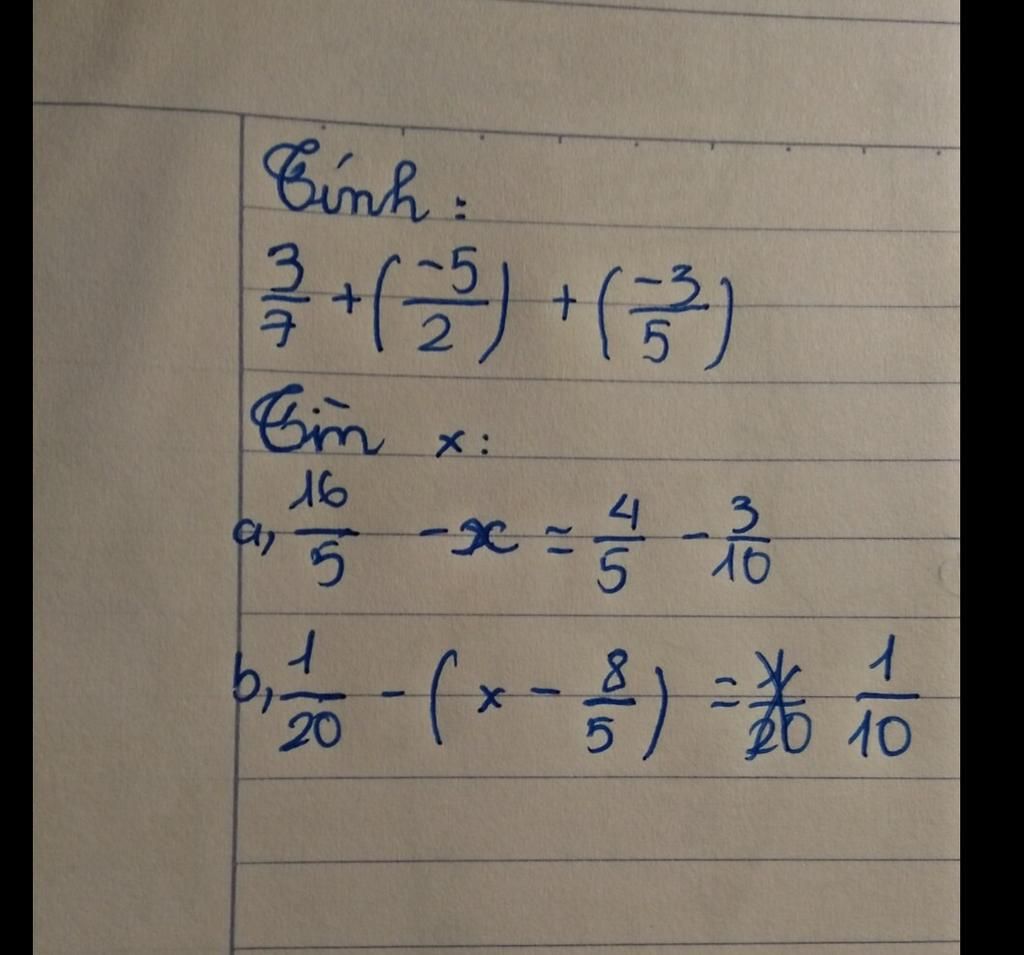 Tính :
3/7 + (-5/2) + (-3/5)
Tìm x :
a, 16/5 - x = 4/5 - 3/10
b, 1/20 - (x - 8/5) = 1/10